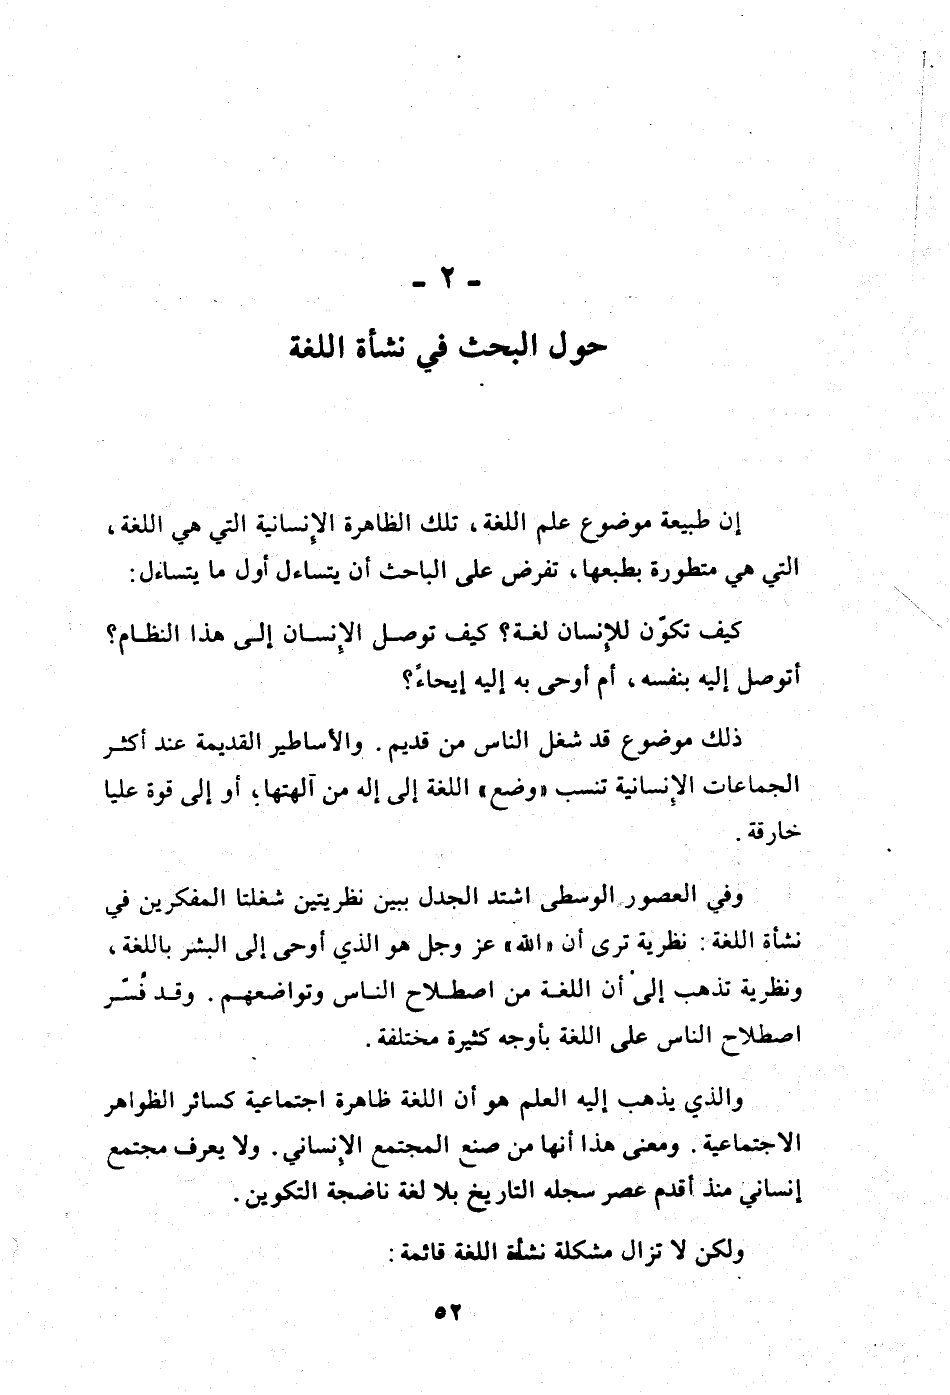 - ٢ -
حول البحث في نشأة اللغة
إن طبيعة موضوع علم اللغة، تلك الظاهرة الإنسانية التي هي اللغة،
التي هي متطورة بطبعها، تفرض على الباحث أن يتساءل أول ما يتساءل:
كيف تكوّن للإنسان لغة؟ كيف توصل الإنسان إلى هذا النظام؟
أتوصل إليه بنفسه، أم أوحى به إليه إيحاءً؟
ذلك موضوع قد شغل الناس من قديم. والأساطير القديمة عند أكثر
الجماعات الإنسانية تنسب «وضع» اللغة إلى إله من آلهتها، أو إلى قوة عليا
خارقة.
وفي العصور الوسطى اشتد الجدل ببين نظريتين شغلتا المفكرين في
نشأة اللغة: نظرية ترى أن «الله» عز وجل هو الذي أوحى إلى البشر باللغة،
ونظرية تذهب إلى أن اللغة من اصطلاح الناس وتواضعهم. وقد فُسّر
اصطلاح الناس على اللغة بأوجه كثيرة مختلفة.
والذي يذهب إليه العلم هو أن اللغة ظاهرة اجتماعية كسائر الظواهر
الاجتماعية. ومعنى هذا أنها من صنع المجتمع الإنساني. ولا يعرف مجتمع
إنساني منذ أقدم عصر سجله التاريخ بلا لغة ناضجة التكوين.
ولكن لا تزال مشكلة نشأة اللغة قائمة:
٥٢